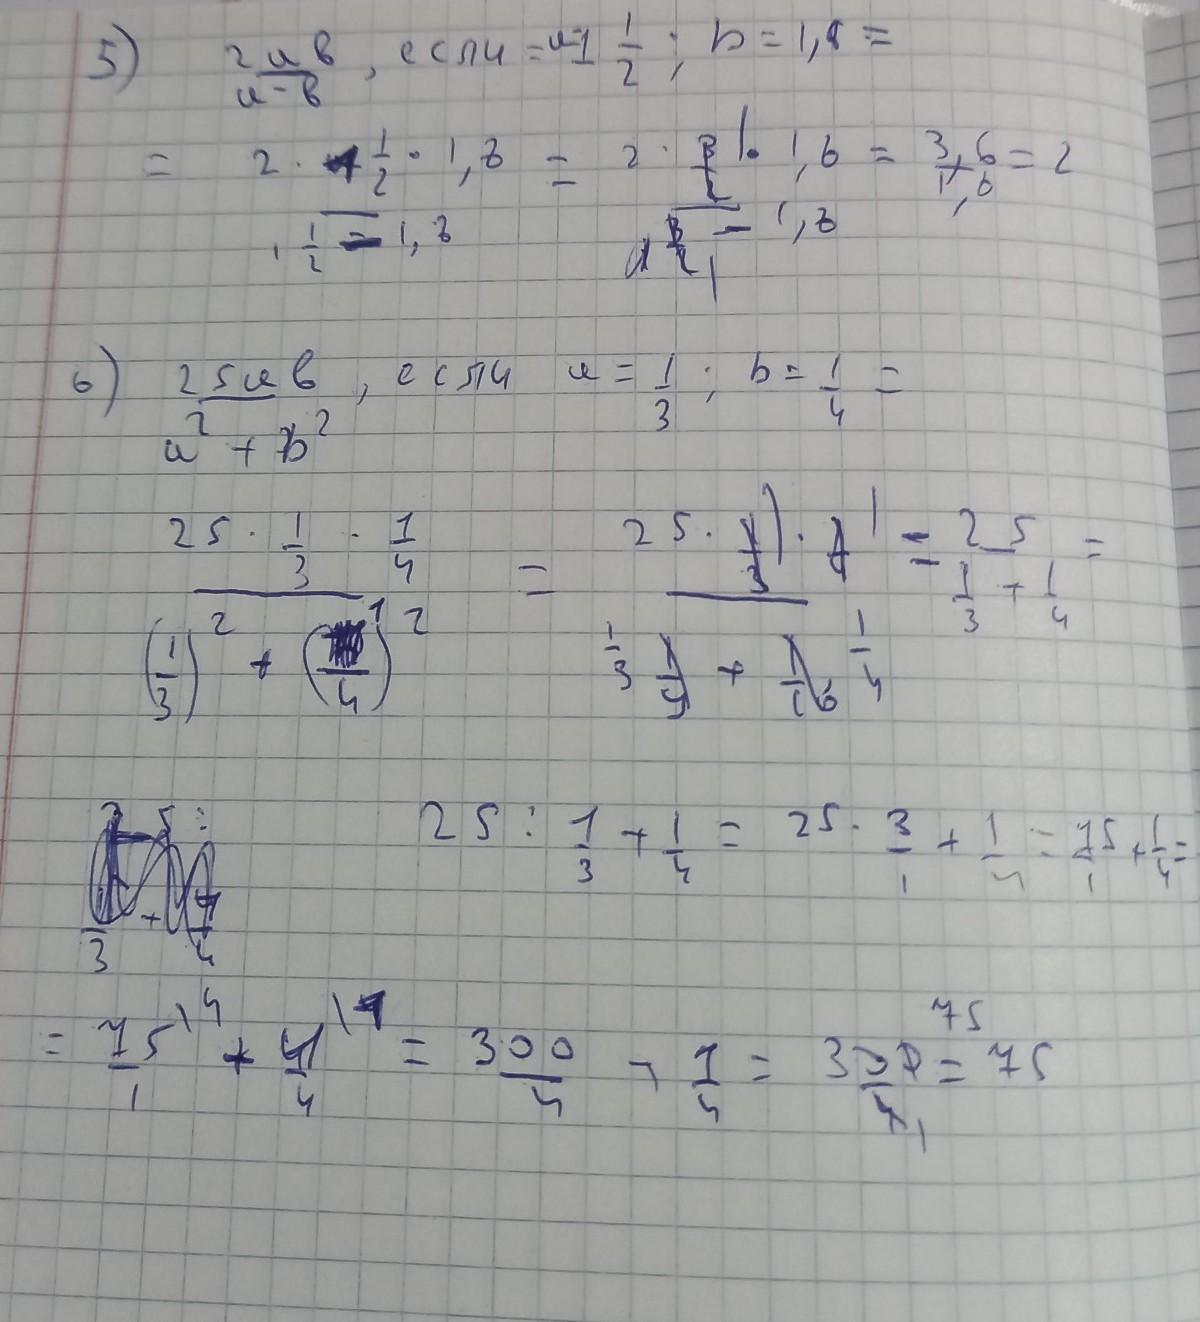 5) 2ab/a-b, если = a=1 1/2; b=1,8 =
= 2 · 1/2 · 1,8 / 1 1/2 - 1,8 = 2 · 3/2 · 1,8 / 3/2 - 1,8 = 3,6/1,8 = 2
6) 25ab/a²+b², если a = 1/3; b = 1/4 =
25 · 1/3 · 1/4 / (1/3)² + (1/4)² = 25 · 1/3 · 1 / 1/3 1/9 + 1/16 1/4 = 25 / 1/3 + 1/4 =
25 : 1/3 + 1/4 = 25 · 3/1 + 1/4 = 75/1 + 1/4 =
= 75/1 \4 + 1/4 \1 = 300/4 + 1/4 = 301/4 = 75